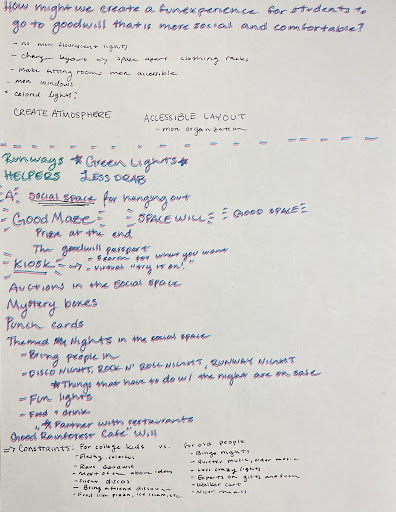 How might we create a fun experience for students to
go to goodwill that is more social and comfortable?
- no more flourescent lights
- change layout w/ space apart clothing racks
- make fitting rooms more accessible
- more windows
* colored lights?
CREATE ATMOSPHERE ACCESSIBLE LAYOUT
- more organization
Runways * Green Lights *
HELPERS LESS DRAB
A social space for hanging out
Good Maze SPACE WILL GOOD SPACE
Prize at the end
The goodwill passport
KIOSK → - Search for what you want
- Virtual "try it on!"
Auctions in the social space
Mystery boxes
Punch cards
Themed Nights in the social space
- Bring people in
- DISCO NIGHT, ROCK N' ROLL NIGHT, RUNWAY NIGHT
* Things that have to do w/ the night are on sale
- Fun lights
- Food + drink
* Partner with restaurants
Good Rainforest Cafe Will
=> Constraints: For college kids vs. for old people
- Flashy, colorful - Bingo nights
- Rave Goodwill - Quieter music, older music
- Most of the above ideas - Less crazy lights
- discos - Experts on gifts and such
- Bring a friend discount - Walker carts
- Food like pizza, ice cream, etc. - Nicer meals